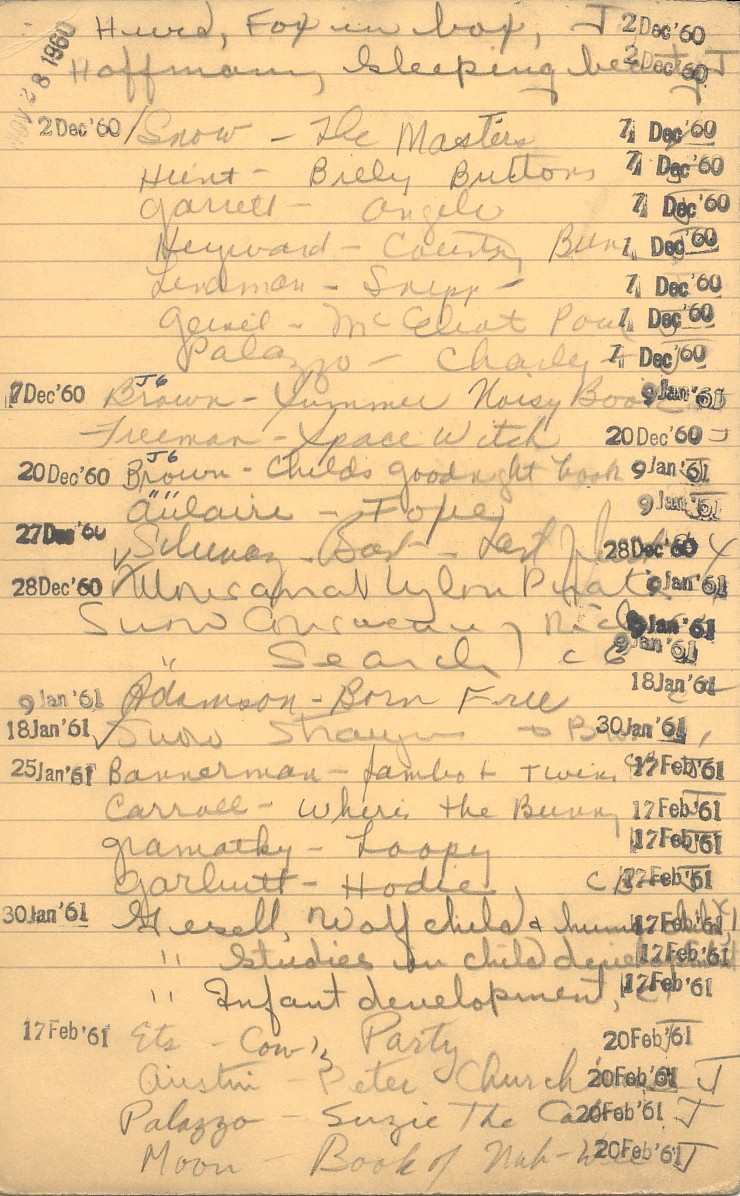 NOV 28 1960
Hurd, Fox in box, J 2 Dec '60
Hoffmann, Sleeping beauty J 2 Dec '60
2 Dec '60 / Snow - The Masters 7 Dec '60
Hunt - Billy Buttons 7 Dec '60
Garrett - Angelo 7 Dec '60
Heyward - Country Bun 7 Dec '60
Lindman - Snipp - 7 Dec '60
Geisel - McEliot Pool 7 Dec '60
Palazzo - Charley 7 Dec '60
7 Dec '60 Brown J6 - Summer Noisy Book 9 Jan '61
Freeman - Space Witch 20 Dec '60 J
20 Dec '60 Brown J6 - Childs goodnight book 9 Jan '61
d'Aulaire - 9 Jan '61
27 Dec '60 - Last 28 Dec '60
28 Dec '60 Nylon Pirates 9 Jan '61
Snow 9 Jan '61
" Search C6 9 Jan '61
9 Jan '61 Adamson - Born Free 18 Jan '61
18 Jan '61 Snow 30 Jan '61
25 Jan '61 Bannerman - Sambo + Twins 17 Feb '61
Carroll - Where's the Bunny 17 Feb '61
Gramatky - Loopy 17 Feb '61
Garbutt - Hodie, 17 Feb '61
30 Jan '61 Gesell, Wolf child & human child, 17 Feb '61
" Studies in child development 17 Feb '61
" Infant development, 17 Feb '61
17 Feb '61 Ets - Cow's Party 20 Feb '61 J
Austin - Peter Churchmouse 20 Feb '61 J
Palazzo - Suzie The Cat 20 Feb '61 J
Moon - Book of Nah-Wee 20 Feb '61 J